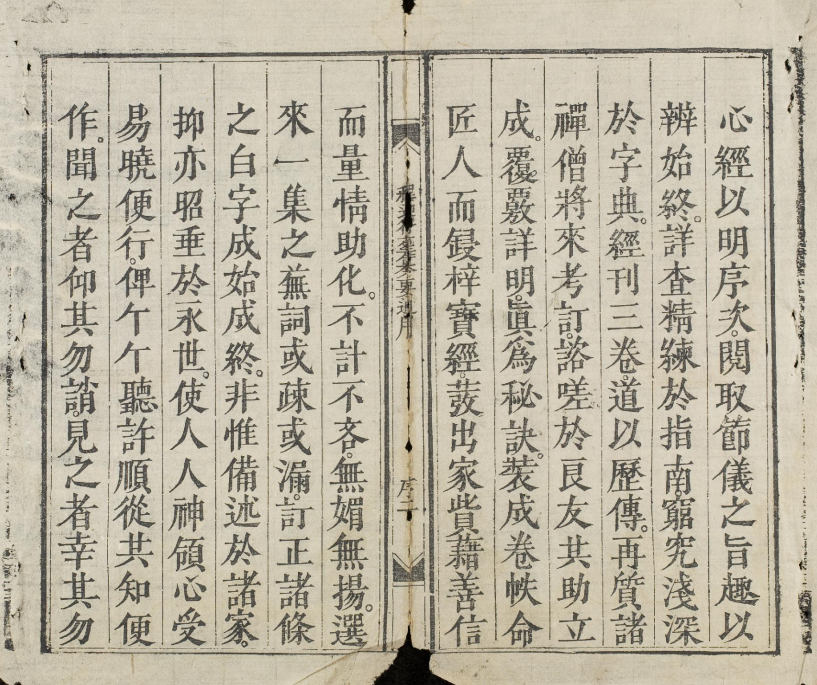 心經以明序次。閱取節儀之旨趣以
辨始終。詳查精練於指南。窮究淺深
於字典。經刊三卷。道以歷傳。再質諸
禪僧將來考訂。諮嗟於良友共助立
成。覆覈詳明。眞爲秘訣。裝成卷帙命
匠人而鋟梓寶經。茇出家貲藉善信
序二
而量情助化。不計不吝。無媢無揚。選
來一集之蕪詞或疎或漏。訂正諸條
之白字成始成終。非惟備述於諸家。
抑亦昭垂於永世。使人人神領心受
易曉便行。俾个个聽許順從其知便
作。聞之者仰其勿誚。見之者幸其勿